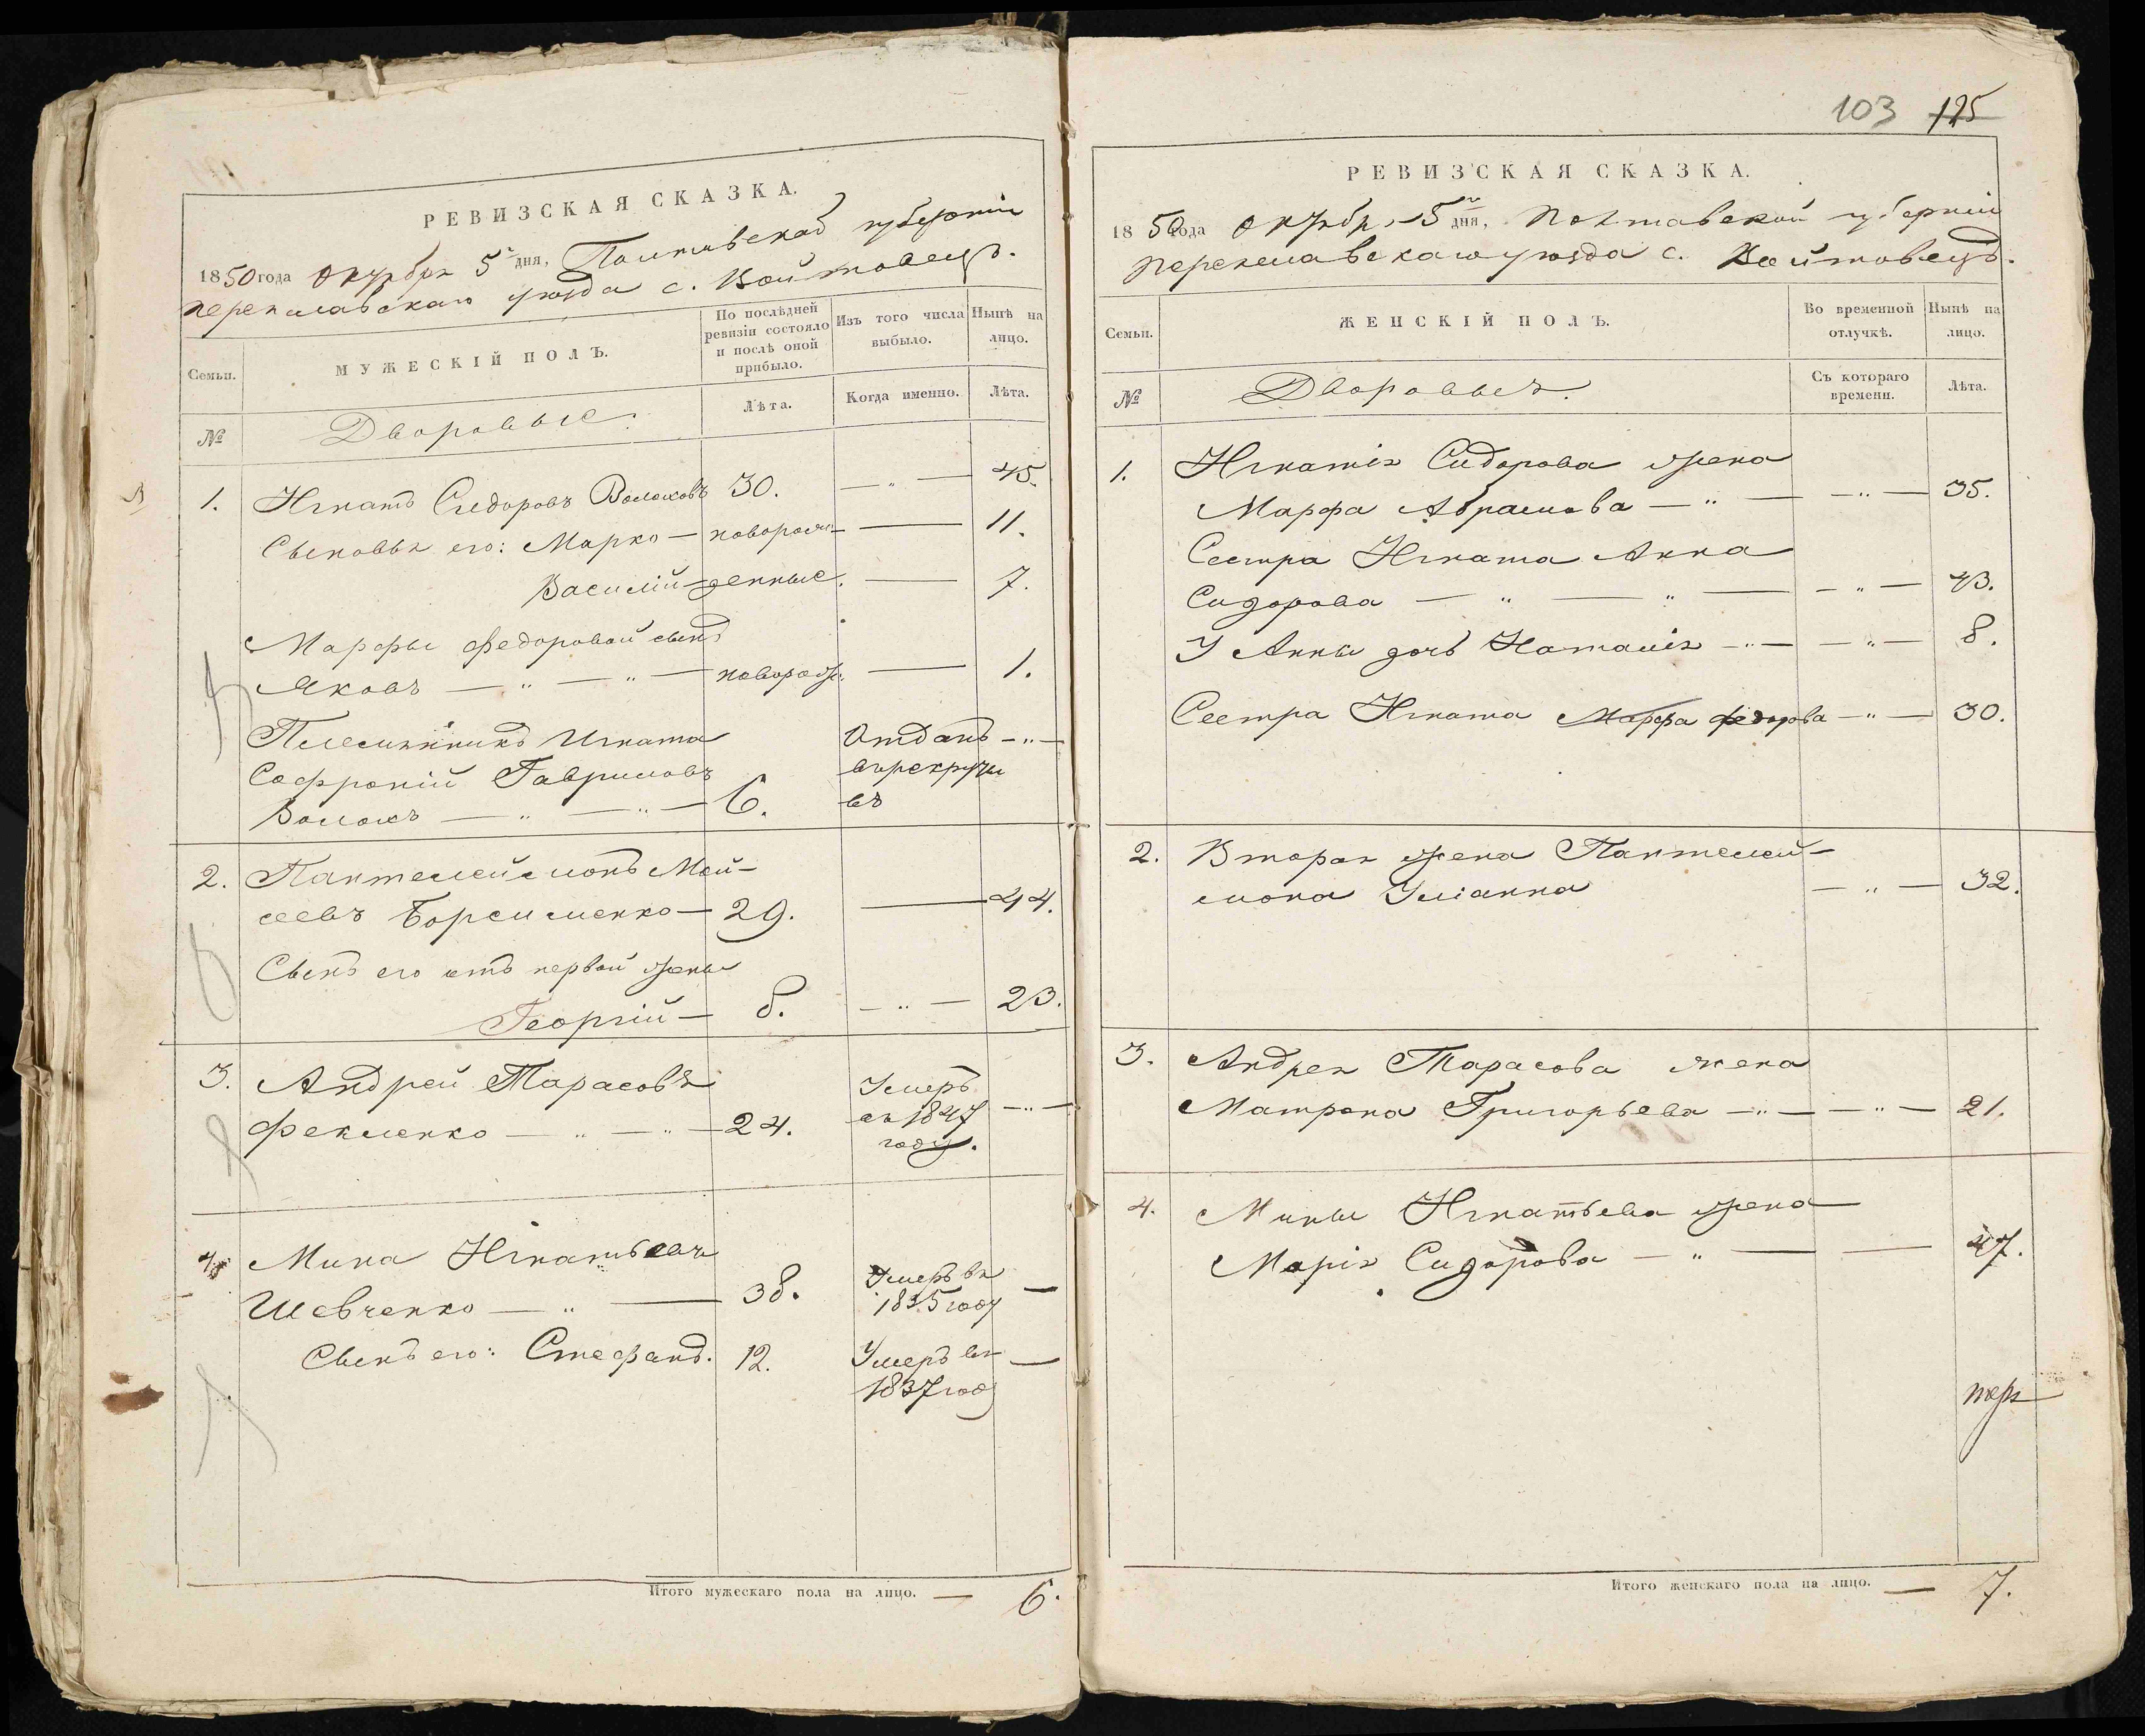 РЕВИЗСКАЯ СКАЗКА.
1850 года Октября 5 дня, Полтавской губерніи
Переяславскаго уѣзда с. Войтовецъ.
Семьи.
МУЖЕСКІЙ ПОЛЪ.
По послѣдней ревизіи состояло и послѣ оной прибыло.
Изъ того числа выбыло.
Нынѣ на лицо.
№
Дворовые.
Лѣта.
Когда именно.
Лѣта.
1. Игнатъ Сидоровъ Волоховъ 30. — " — 45.
Сыновья его: Марко — новорож- — 11.
Василій — денные. — 7.
Марфы Федоровой сынъ
Яковъ — " — " — новорож: — 1.
Племянникъ Игната Отданъ — " —
Софроній Гавриловъ врекруты
Волохъ — " — " — 6. въ
2. Пантелеймонъ Мой-
сеевъ Борсименко — 29. — 44.
Сынъ его отъ первой жены
Георгій — 8. — " — 23.
3. Андрей Тарасовъ Умеръ
Фекленко — " — " — 24. въ 1847 — " —
году.
4. Мина Игнатьевъ
Шевченко — " — 38. Умеръ въ —
1835 году
Сынъ его: Стефанъ. 12. Умеръ въ —
1837 году
Итого мужескаго пола на лицо. — 6.
103 125
РЕВИЗСКАЯ СКАЗКА.
1850 года Октября 5 дня, Полтавской губерніи
Переяславскаго уѣзда с. Войтовецъ.
Семьи.
ЖЕНСКІЙ ПОЛЪ.
Во временной отлучкѣ.
Нынѣ на лицо.
№
Дворовыхъ.
Съ котораго времени.
Лѣта.
1. Игнатія Сидорова жена
Марфа Абрамова — " — — " — 35.
Сестра Игната Анна
Сидорова — " — " — — " — 43.
У Анны дочь Наталія — " — — " — 8.
Сестра Игната Марфа Федорова — " — 30.
2. Вторая жена Пантелей-
мона Уліанна — " — 32.
3. Андрея Тарасова жена
Матрона Григорьева — " — — " — 21.
4. Мины Игнатьева жена
Марія Сидорова — " — — 47.
Итого женскаго пола на лицо. — 7.